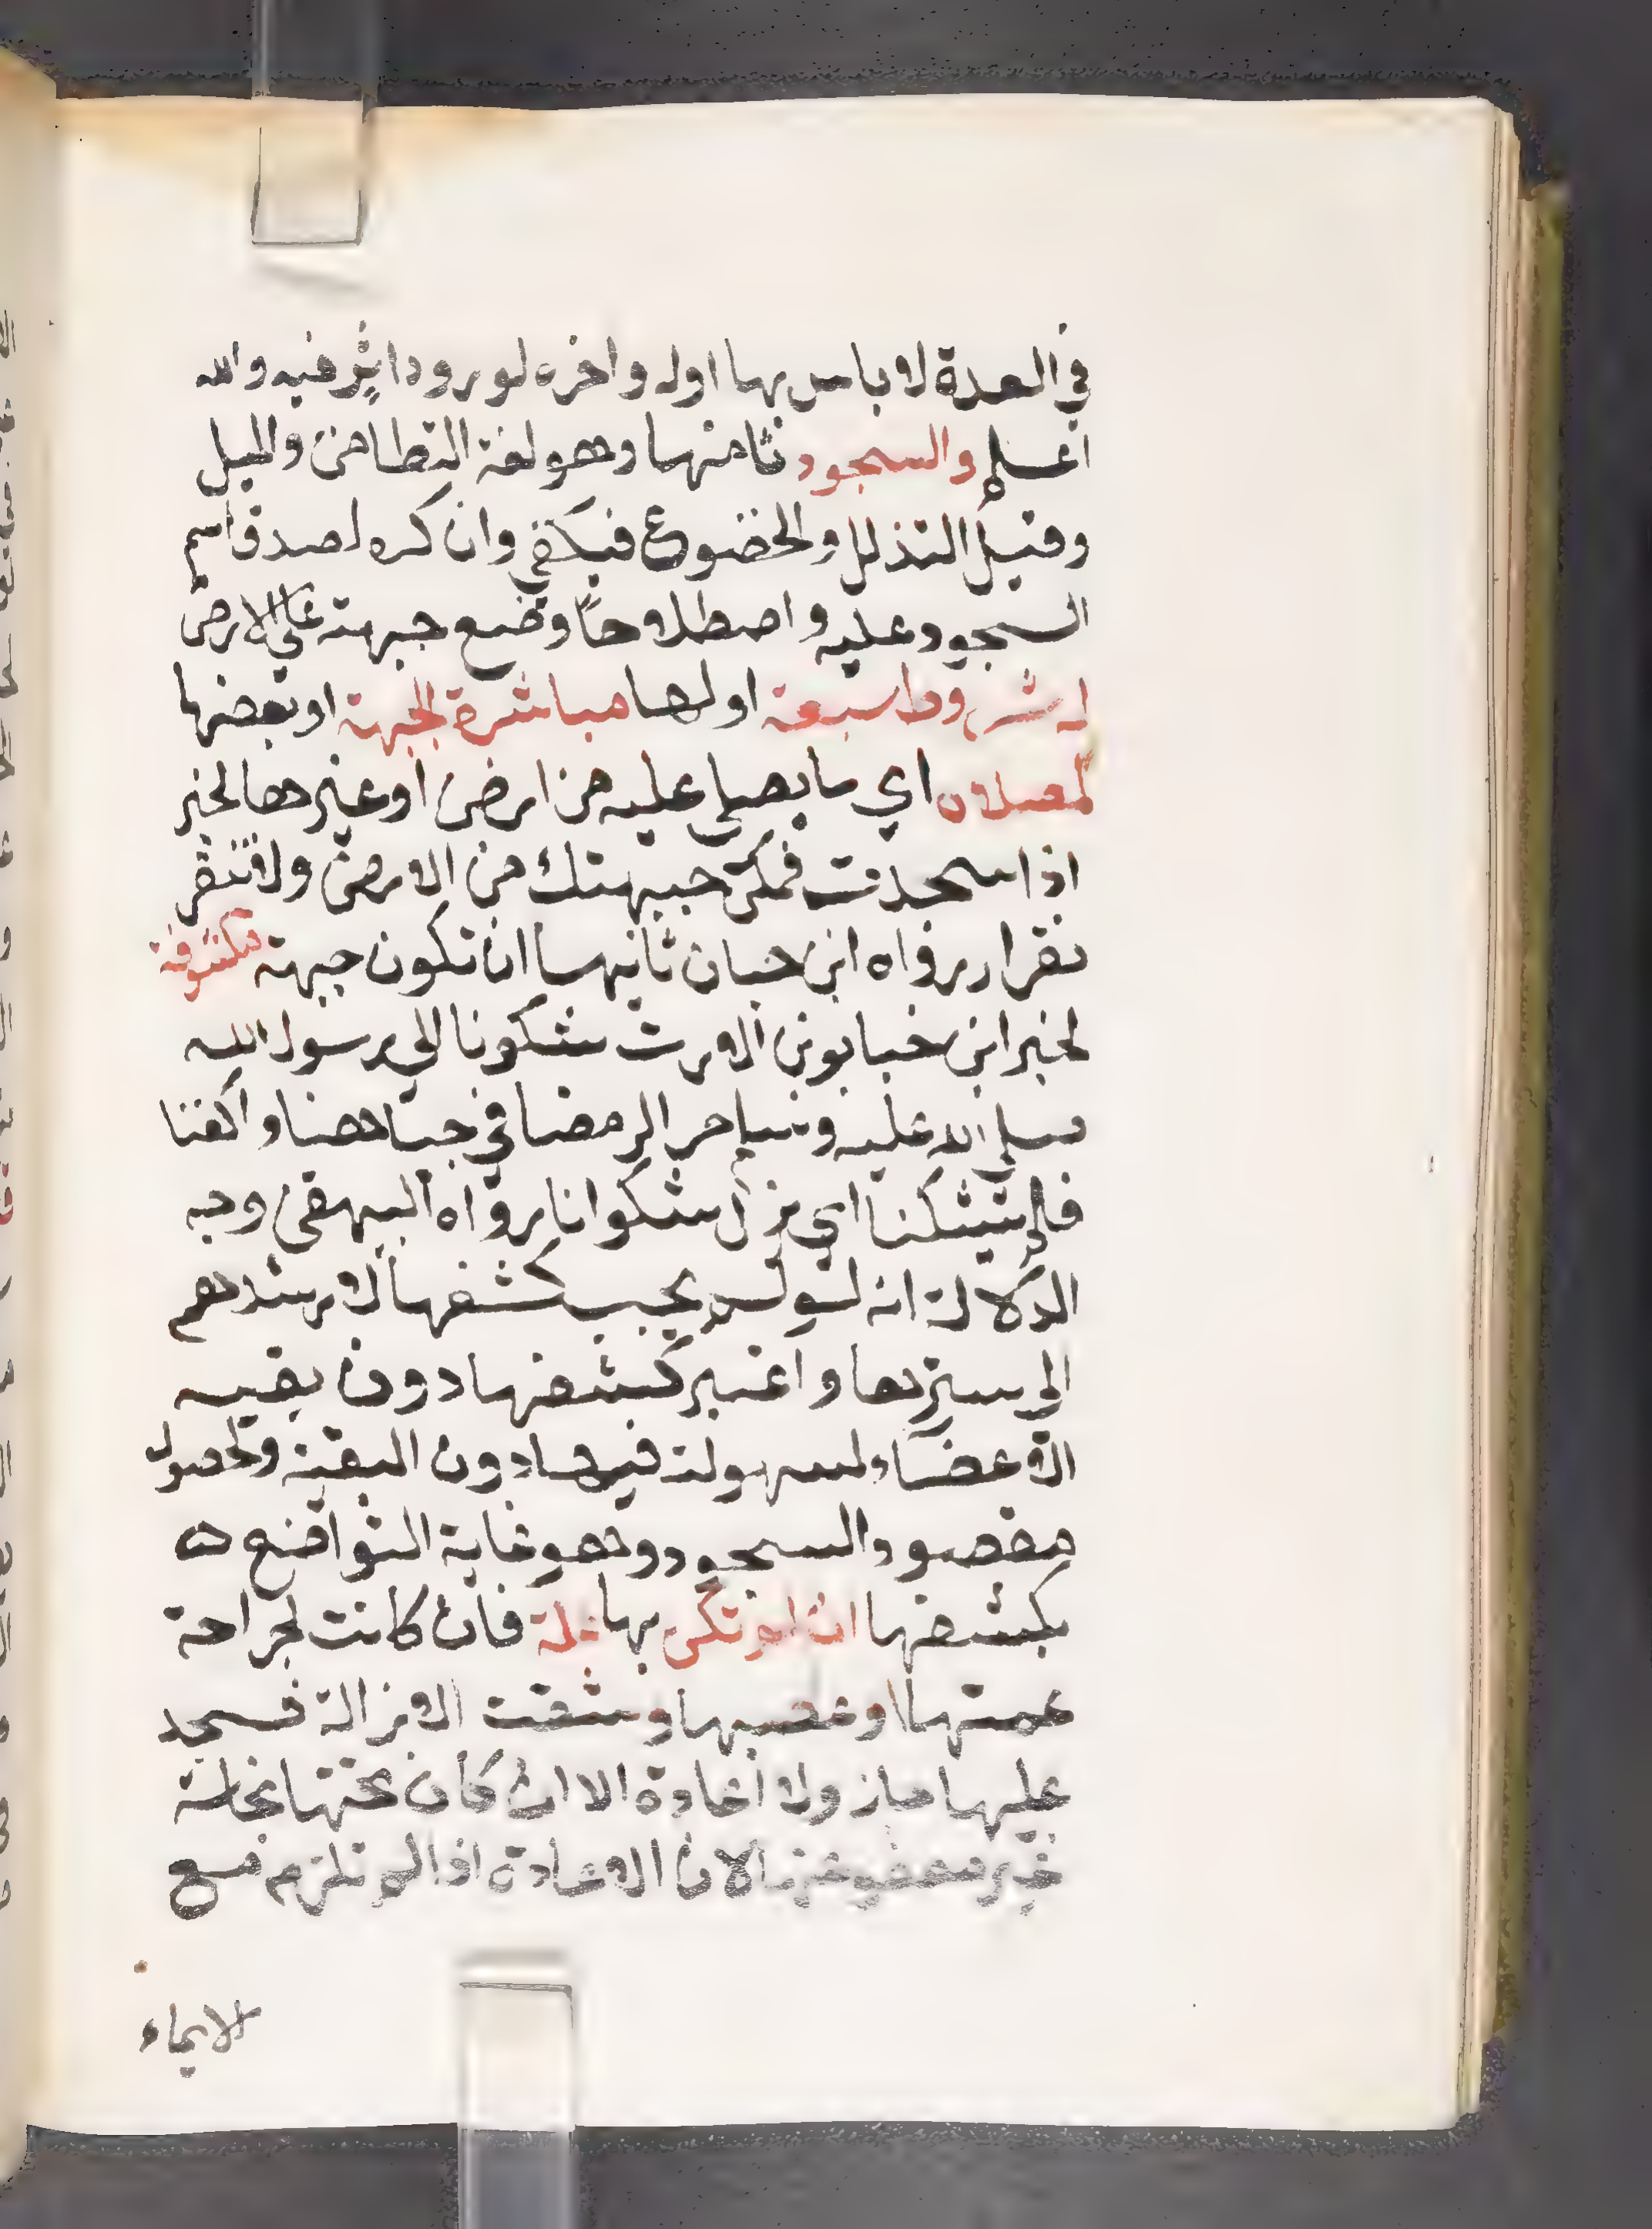 في العدة لا باس بها اوله واخره لورود اثر فيه والله
اعلم والسجود ثامنها وهو لغة التطامن والميل
وقيل التذلل والخضوع فيكفي وان كره لصدق اسم
السجود عليه واصطلاحا وضع جبهته على الارض
له شروط سبعة اولها مباشرة الجبهة او بعضها
لمصلاه اي ما يصلي عليه من ارض او غيرها لخبر
اذا سجدت فمكن جبهتك من الارض ولا تنقر
نقرا رواه ابن حبان ثانيها ان تكون جبهته مكشوفة
لخبر ابن خباب بن الارث شكونا الى رسول الله
صلى الله عليه وسلم حر الرمضا في جباهنا واكفنا
فلم يشكنا اي يزل شكوانا رواه البيهقي وجه
الدلالة انه لو لم يجب كشفها لارشدهم
الى سترها واعتبر كشفها دون بقيه
الاعضاء لسهولته فيها دون البقية ولحصول
مقصود السجود وهو غاية التواضع ه
بكشفها ان لم تكن بها علة فان كانت لجراحة
عمتها او عصبها وشقت الازالة فسجد
عليها جاز ولا اعادة الا ان كان تحتها نجاسة
غير معفو عنها لان الاعادة اذا لم تلزم مع
الايماء